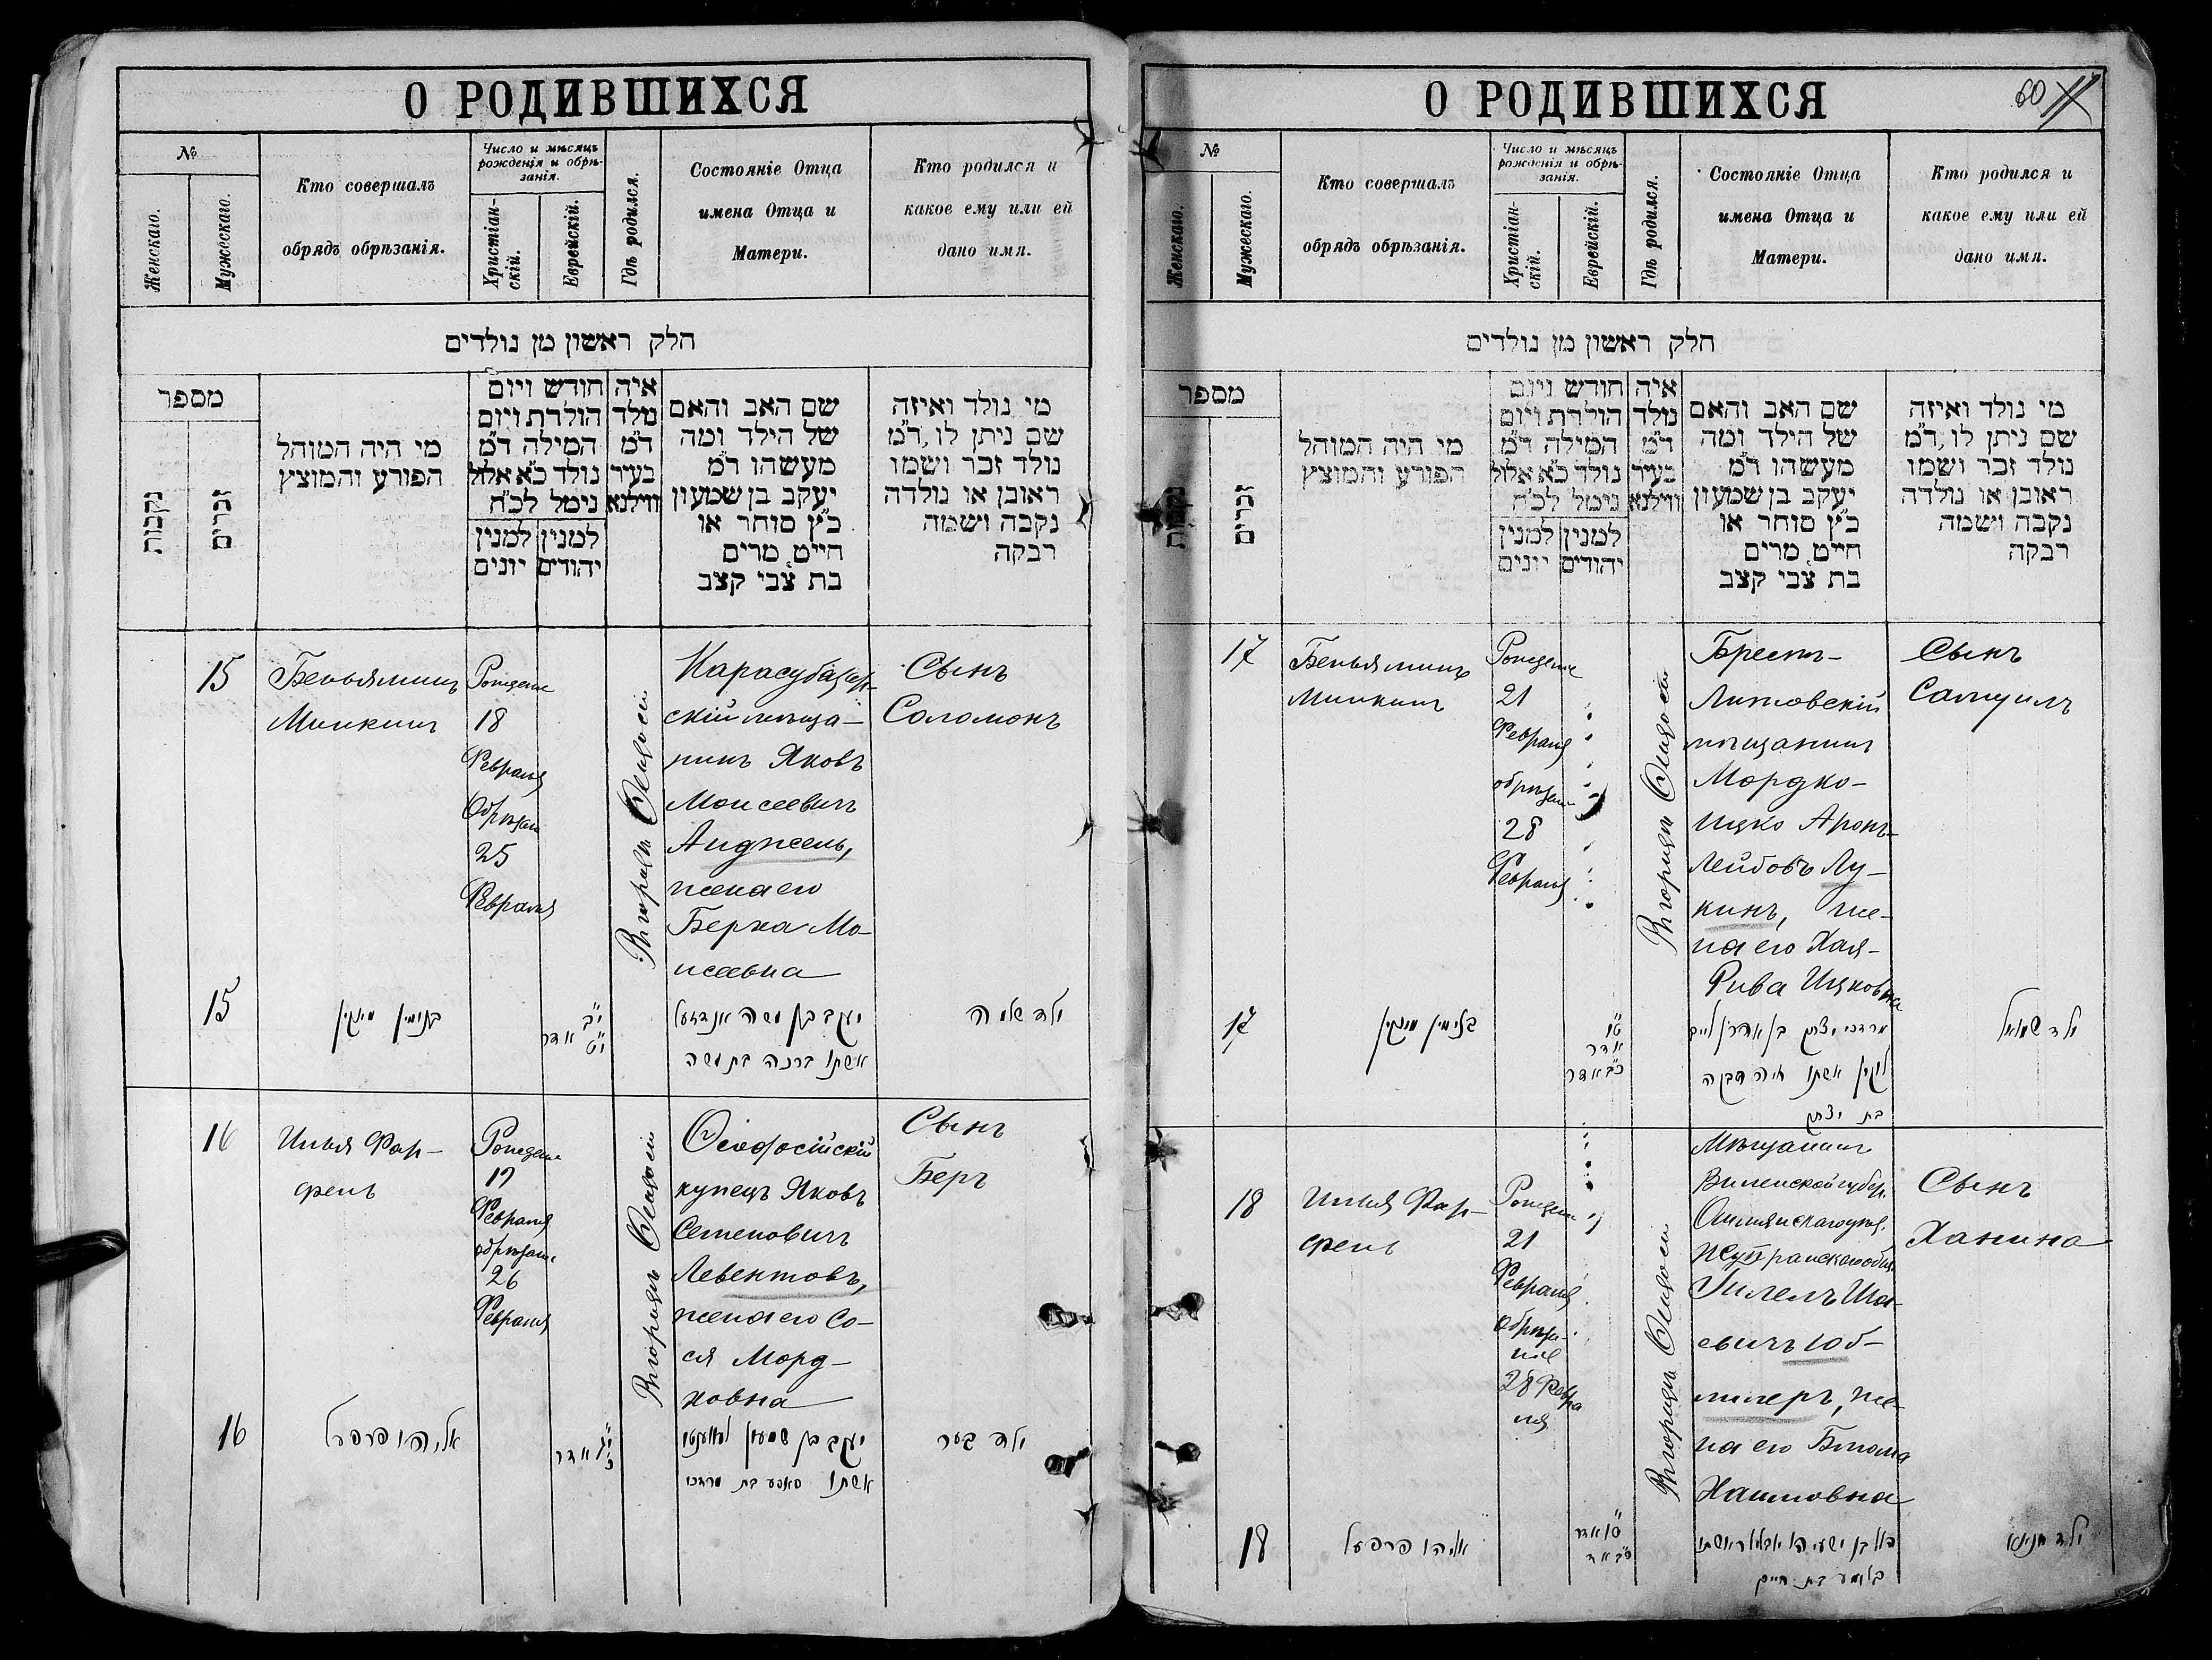 О РОДИВШИХСЯ
№
Женскаго.
Мужескаго.
Кто совершалъ
обрядъ обрѣзанія.
Число и мѣсяцъ
рожденія и обрѣ-
занія.
Христіан-
скій.
Еврейскій.
Гдѣ родился.
Состояніе Отца
имена Отца и
Матери.
Кто родился и
какое ему или ей
дано имя.
חלק ראשון מן נולדים
מספר
נקבות
זכרים
מי היה המוהל
הפורע והמוצץ
חודש ויום
הולדת ויום
המילה ד"מ
נולד כ"א אלול
נימל לכ"ח
למנין למנין
יהודים יונים
איה
נולד
ד"מ
בעיר
ווילנא
שם האב והאם
של הילד ומה
מעשהו ד"מ
יעקב בן שמעון
כ"ץ סוחר או
חייט, מרים
בת צבי קצב
מי נולד ואיזה
שם ניתן לו, ד"מ
נולד זכר ושמו
ראובן או נולדה
נקבה ושמה
רבקה
15
Беньяминъ
Минкинъ
18
Февраля
25
Февраля
Карасубазар-
скій мѣща-
нинъ Яковъ
Моисеевичъ
Анджель,
жена его
Берха Мо-
исеевна
Сынъ
Соломонъ
15
בנימין מינקין
י"ב
י"ט אדר
יעקב בן משה אנדזעל
אשתו ברכה בת משה
ילד שלמה
16
Илья Фар-
фель
19
Февраля
26
Февраля
Ѳеодосійскій
купецъ Яковъ
Семеновичъ
Левентовъ,
жена его Со-
ся Морд-
ховна
Сынъ
Беръ
16
אליהו פרפל
אדר
יעקב בן שמעון
אשתו סאסע בת מרדכי
ילד בער
О РОДИВШИХСЯ
60
№
Женскаго.
Мужескаго.
Кто совершалъ
обрядъ обрѣзанія.
Число и мѣсяцъ
рожденія и обрѣ-
занія.
Христіан-
скій.
Еврейскій.
Гдѣ родился.
Состояніе Отца
имена Отца и
Матери.
Кто родился и
какое ему или ей
дано имя.
חלק ראשון מן נולדים
מספר
נקבות
זכרים
מי היה המוהל
הפורע והמוצץ
חודש ויום
הולדת ויום
המילה ד"מ
נולד כ"א אלול
נימל לכ"ח
למנין למנין
יהודים יונים
איה
נולד
ד"מ
בעיר
ווילנא
שם האב והאם
של הילד ומה
מעשהו ד"מ
יעקב בן שמעון
כ"ץ סוחר או
חייט, מרים
בת צבי קצב
מי נולד ואיזה
שם ניתן לו, ד"מ
נולד זכר ושמו
ראובן או נולדה
נקבה ושמה
רבקה
17
Беньяминъ
Минкинъ
21
Февраля
28
Февраля
Брестъ-
Литовскій
мѣщанинъ
Мордко-
Ицко Аронъ-
Лейбовъ Лу-
кинъ, же-
на его Хая-
Рива Ицковна
Сынъ
Самуилъ
17
בנימין מינקין
ט"ו
אדר
כ"ב אדר
מרדכי יצחק בן אהרן לייב
לוקין אשתו חיה רבקה
בת יצחק
ילד שמואל
18
Илья Фар-
фель
21
Февраля
28 Февра
ля
Мѣщанинъ
Виленской губер.
Гилель Ша-
евичъ Юб-
лилеръ, же-
на его Блюма
Хаимовна
Сынъ
Ханина
18
אליהו פרפעל
ט"ו אדר
כ"ב אד
בלומע בת חיים
ילד חנינא